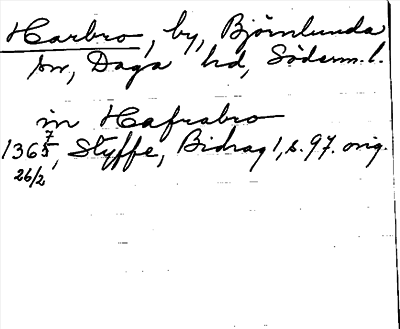 Harbro, by, Björnlunda
sn, Daga hd, Söderm. l.
in Hafrabro
1365, Styffe, Bidrag 1, s. 97. orig.
7
26/2